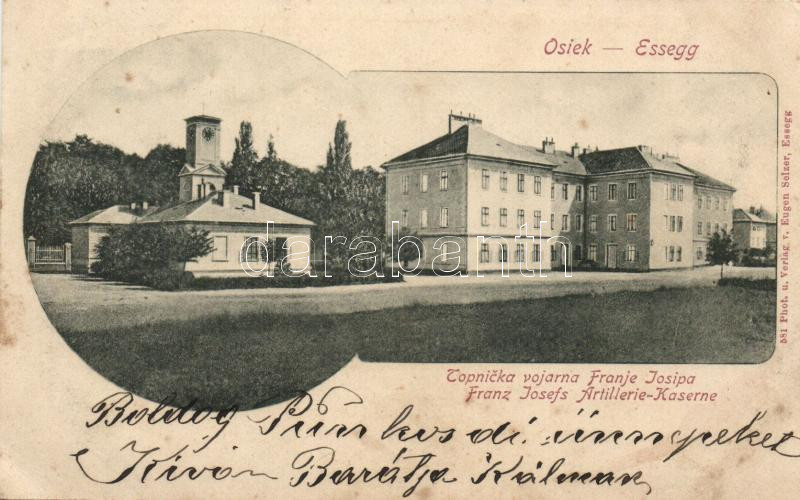 Osiek — Essegg
darabanth
Topnička vojarna Franje Josipa
Franz Josefs Artillerie-Kaserne
581 Phot. u. Verlag v. Eugen Selzer, Essegg
Boldog Pünkosdi ünnepeket
Kíván Barátja Kálmán